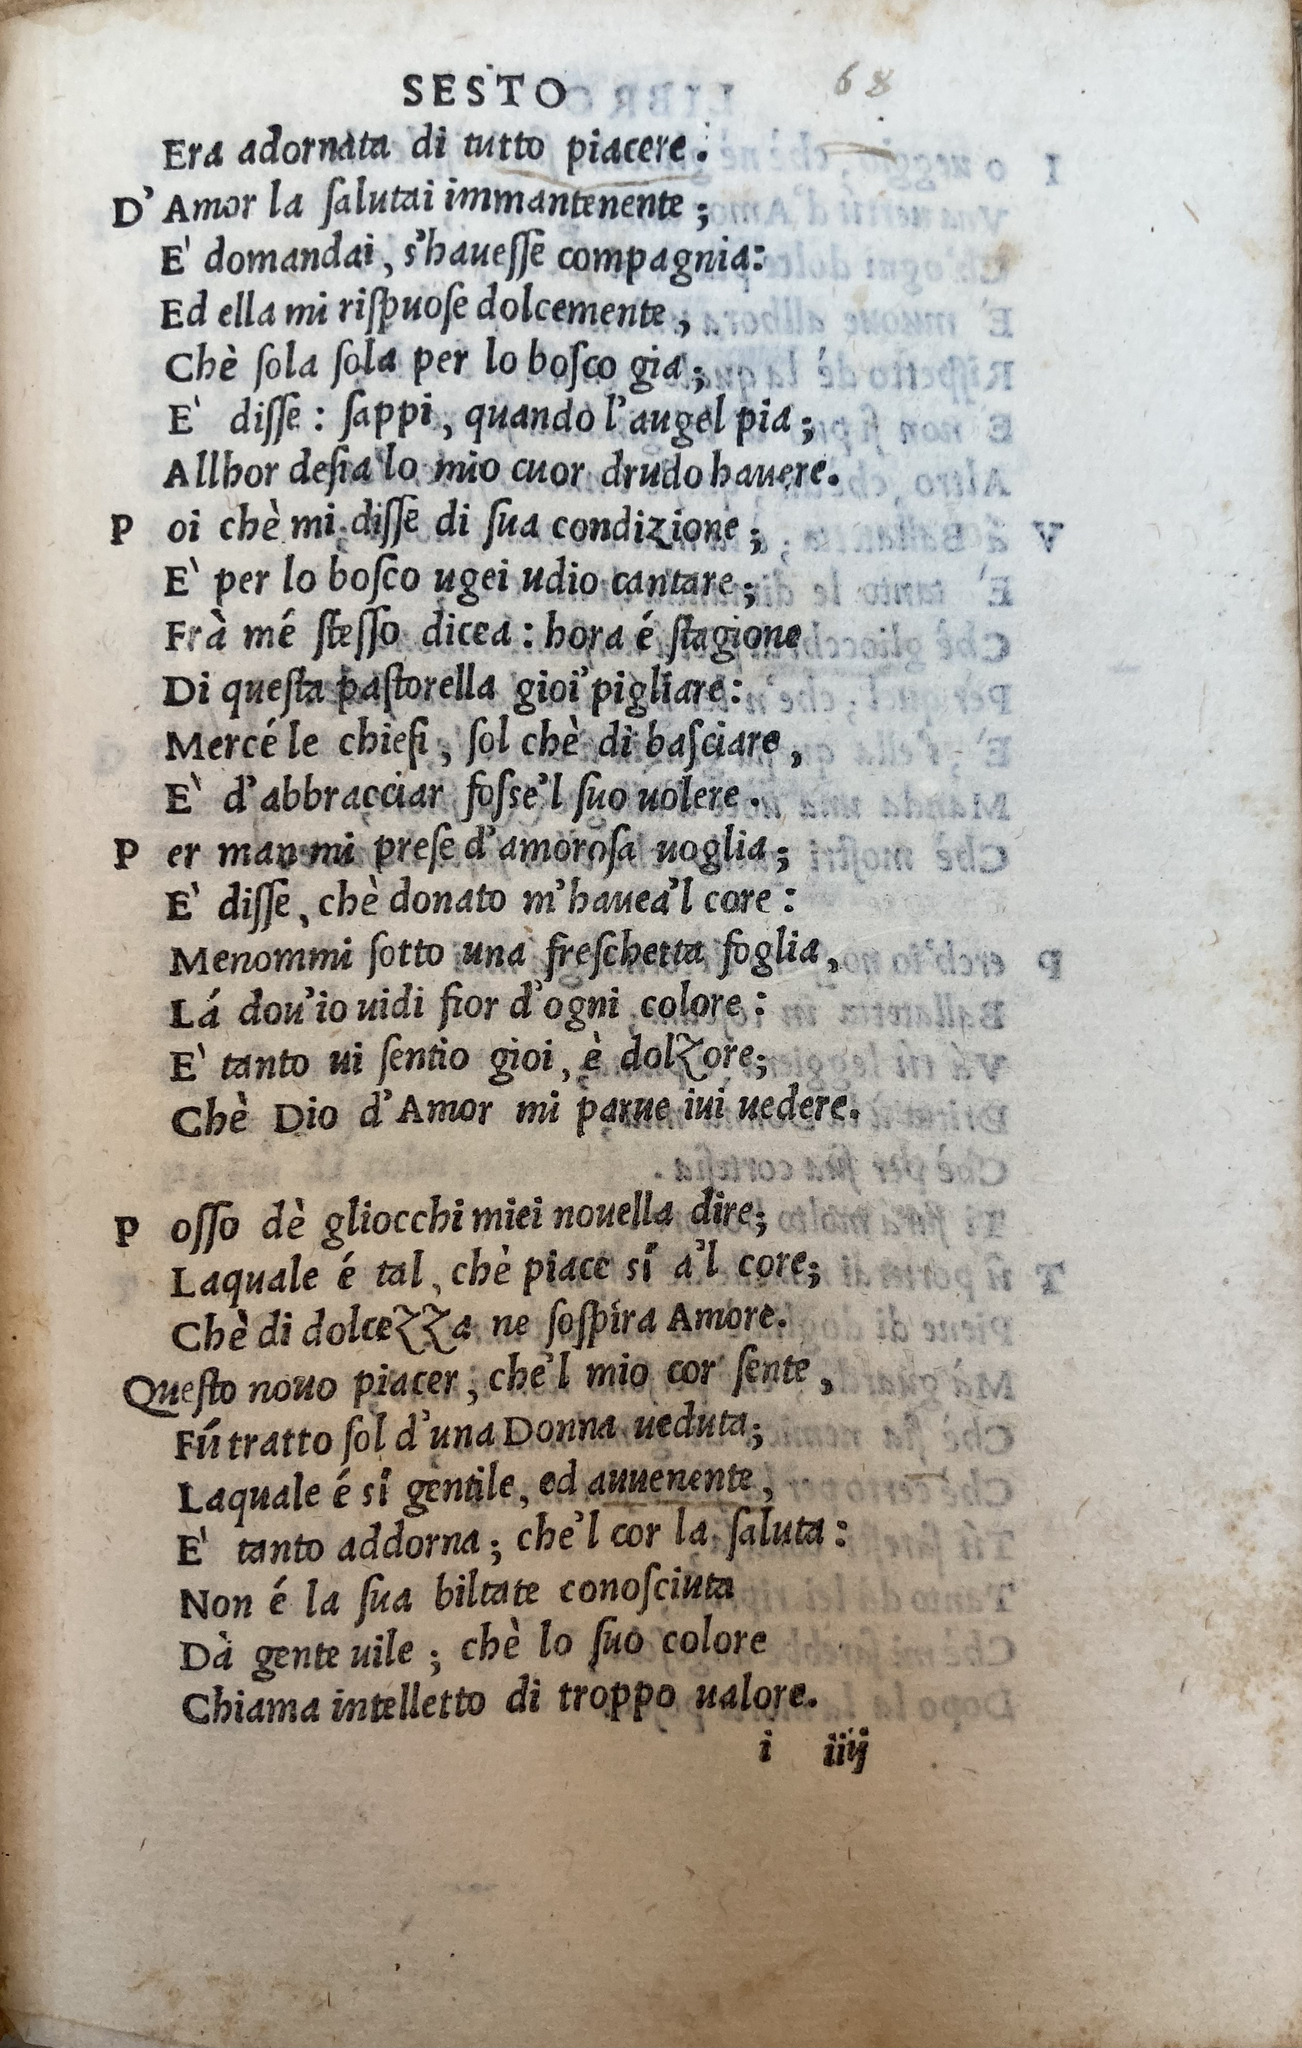 SESTO 68
Era adornata di tutto piacere.
D' Amor la ſalutai immantenente;
E' domandai, s'haueſſe compagnia:
Ed ella mi riſpuoſe dolcemente,
Chè ſola ſola per lo boſco gia;
E' diſſe: ſappi, quando l'augel pia;
Allhor deſia lo mio cuor drudo hauere.
P oi chè mi diſſe di ſua condizione;
E' per lo boſco ugei udio cantare;
Frà mé ſteſſo dicea: hora é ſtagione
Di queſta paſtorella gioi' pigliare:
Mercé le chieſi, ſol chè di baſciare,
E' d'abbracciar foſse'l ſuo uolere.
P er man mi preſe d'amoroſa uoglia;
E' diſſe, chè donato m'hauea'l core:
Menommi ſotto una freſchetta foglia,
Lá dou'io uidi fior d'ogni colore:
E' tanto ui ſentio gioi, è dolzore;
Chè Dio d'Amor mi parue iui uedere.
P oſſo dè gliocchi miei nouella dire;
Laquale é tal, chè piace sí a'l core;
Chè di dolcezza ne ſoſpira Amore.
Queſto nouo piacer, che'l mio cor ſente,
Fú tratto ſol d'una Donna ueduta;
Laquale é sí gentile, ed auuenente,
E' tanto addorna; che'l cor la ſaluta:
Non é la ſua biltate conoſciuta
Dà gente uile; chè lo ſuo colore
Chiama intelletto di troppo ualore.
i iiij